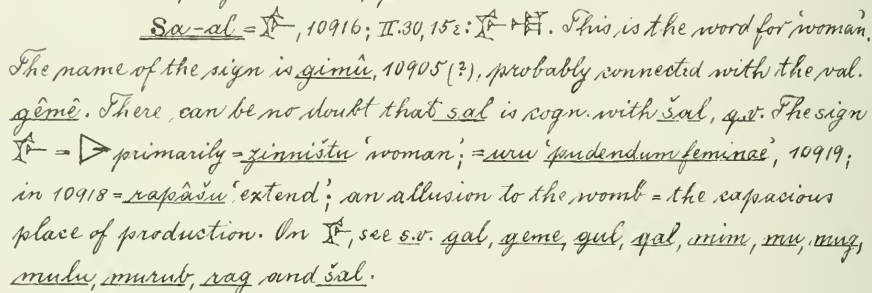 Sa-al = 𒊩, 10916; II. 30, 15ε: 𒊩. This is the word for 'woman'.
The name of the sign is gimû, 10905 (?), probably connected with the val.
gêmê. There can be no doubt that sal is cogn. with šal, q.v. The sign
𒊩 = ▷ primarily = zinništu 'woman'; = uru 'pudendum feminae', 10919;
in 10918 = rapâšu 'extend'; an allusion to the womb = the capacious
place of production. On 𒊩, see s.v. gal, geme, gul, qal, mim, mu, mug,
mulu, murub, rag and šal.